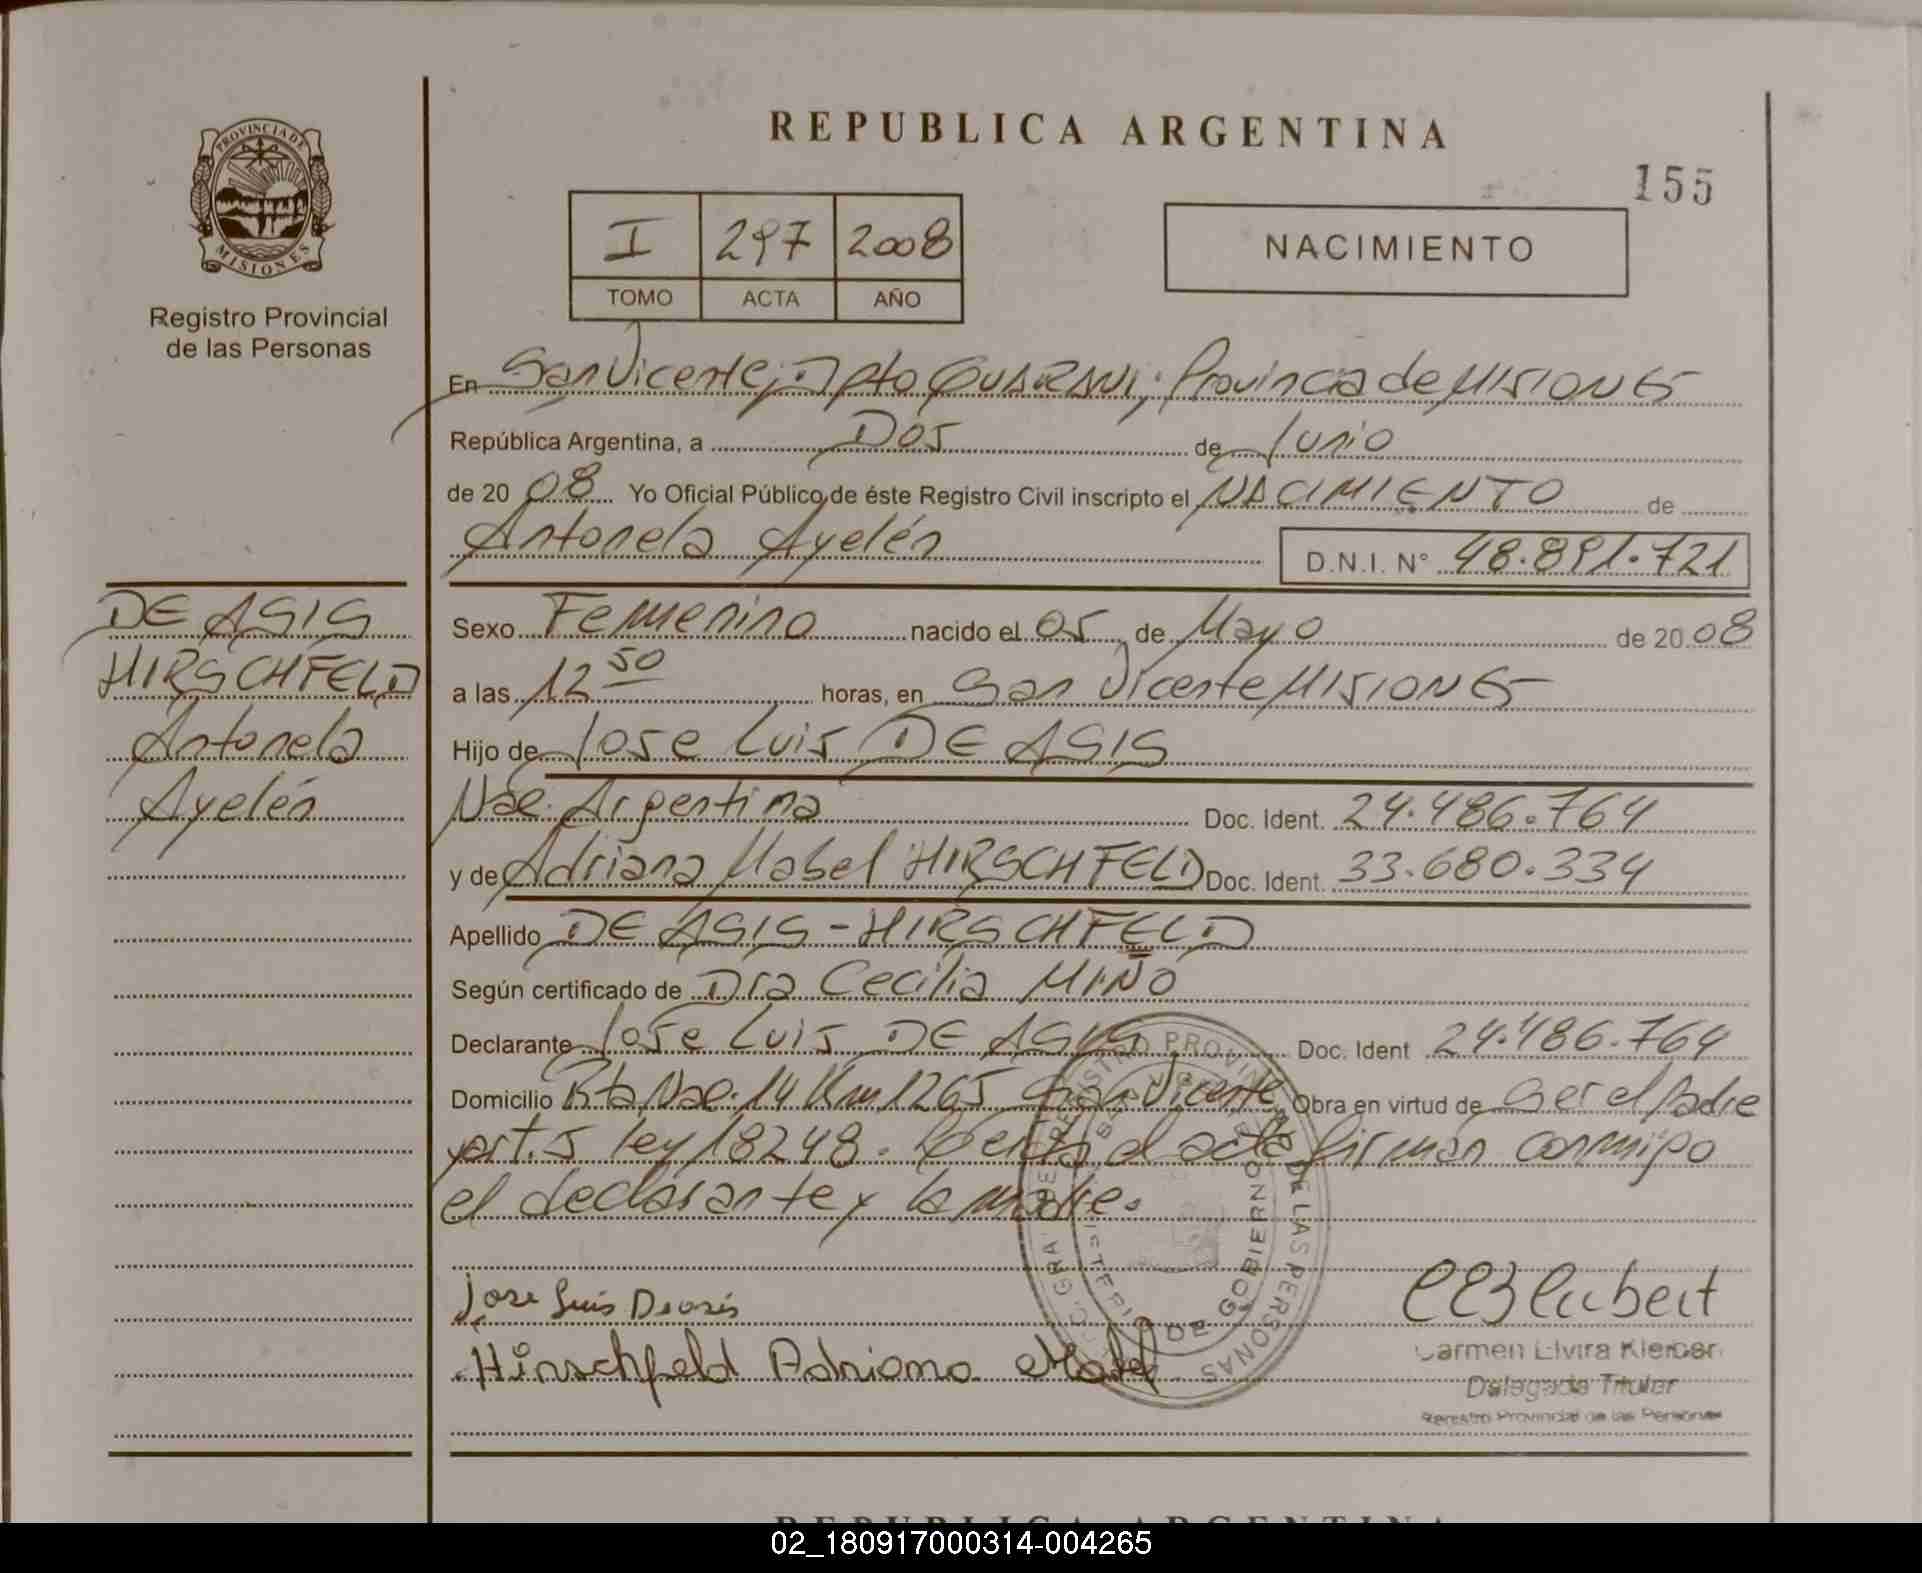 REPUBLICA ARGENTINA
155
PROVINCIA DE MISIONES
Registro Provincial
de las Personas
I 297 2008
TOMO ACTA AÑO
NACIMIENTO
En San Vicente, Dpto GUARANI; Provincia de MISIONES
República Argentina, a Dos de Junio
de 20 08 Yo Oficial Público de éste Registro Civil inscripto el NACIMIENTO de
Antonela Ayelén D.N.I. N° 48.891.721
DE ASIS
HIRSCHFELD
Antonela
Ayelén
Sexo Femenino nacido el 05 de Mayo de 20 08
a las 12 50 horas, en San Vicente MISIONES
Hijo de Jose Luis DE ASIS
Nac. Argentina Doc. Ident. 24.486.764
y de Adriana Mabel HIRSCHFELD Doc. Ident. 33.680.334
Apellido DE ASIS - HIRSCHFELD
Según certificado de Dra Cecilia MIÑO
Declarante Jose Luis DE ASIS Doc. Ident 24.486.764
Domicilio Rta Nac. 14 Km 1265 San Vicente Obra en virtud de Ser el padre
art. 5 ley 18248. el acta firman conmigo
el declarante y la madre.
REGISTRO PROVINCIAL DE LAS PERSONAS
MINISTERIO DE GOBIERNO
Jose Luis Deasis
Hirschfeld Adriana Mabel
Carmen Elvira
Delegada Titular
Registro Provincial de las Personas
REPUBLICA ARGENTINA
02_180917000314-004265